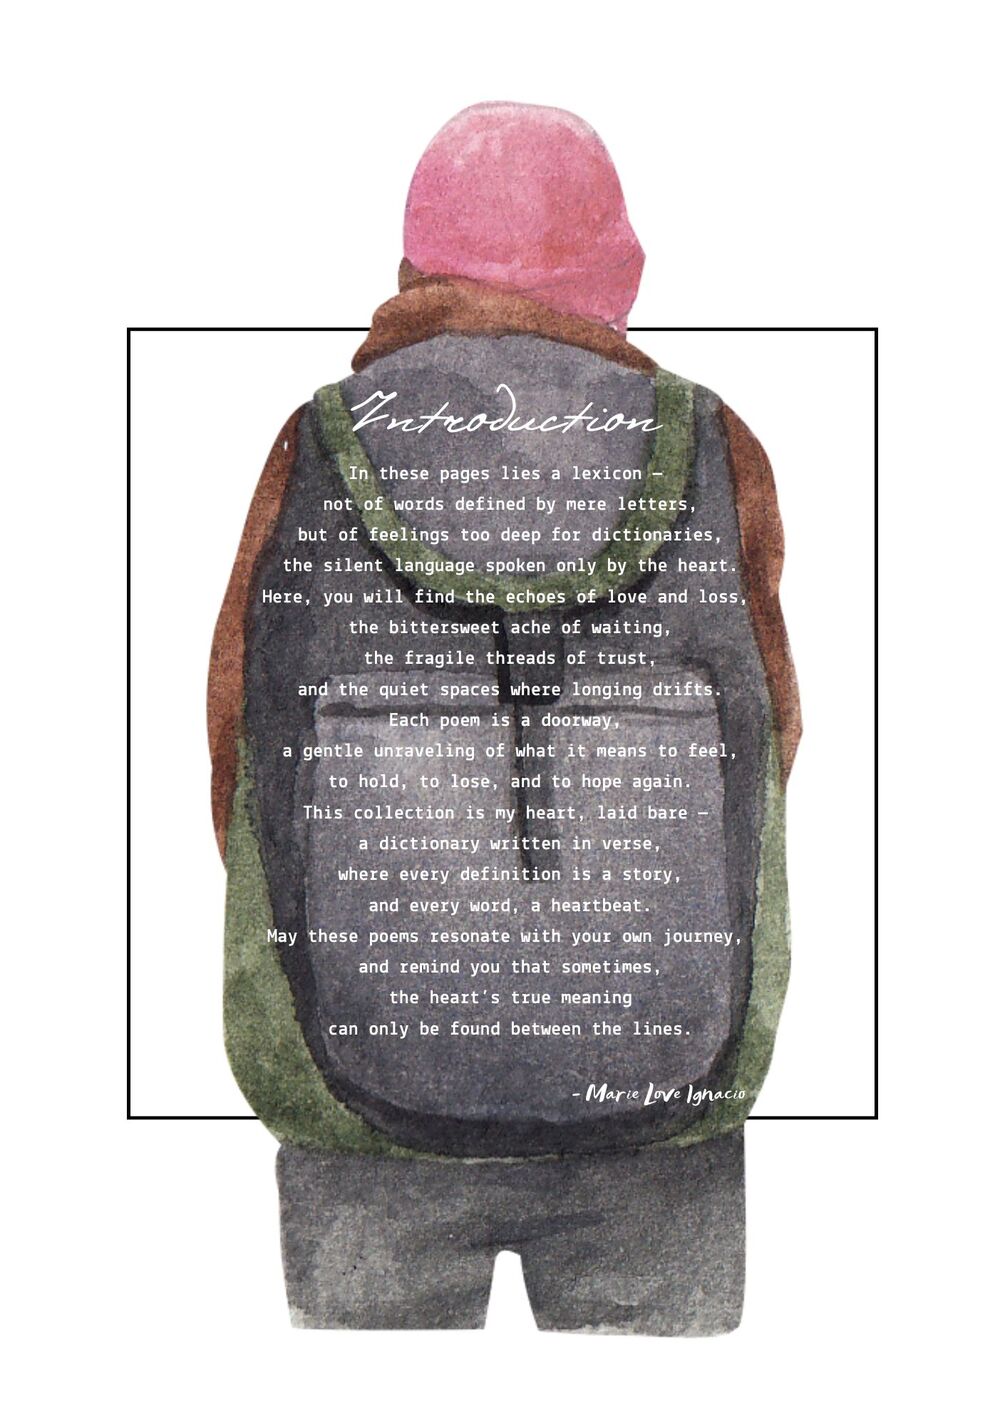 Introduction
In these pages lies a lexicon —
not of words defined by mere letters,
but of feelings too deep for dictionaries,
the silent language spoken only by the heart.
Here, you will find the echoes of love and loss,
the bittersweet ache of waiting,
the fragile threads of trust,
and the quiet spaces where longing drifts.
Each poem is a doorway,
a gentle unraveling of what it means to feel,
to hold, to lose, and to hope again.
This collection is my heart, laid bare —
a dictionary written in verse,
where every definition is a story,
and every word, a heartbeat.
May these poems resonate with your own journey,
and remind you that sometimes,
the heart’s true meaning
can only be found between the lines.
- Marie Love Ignacio